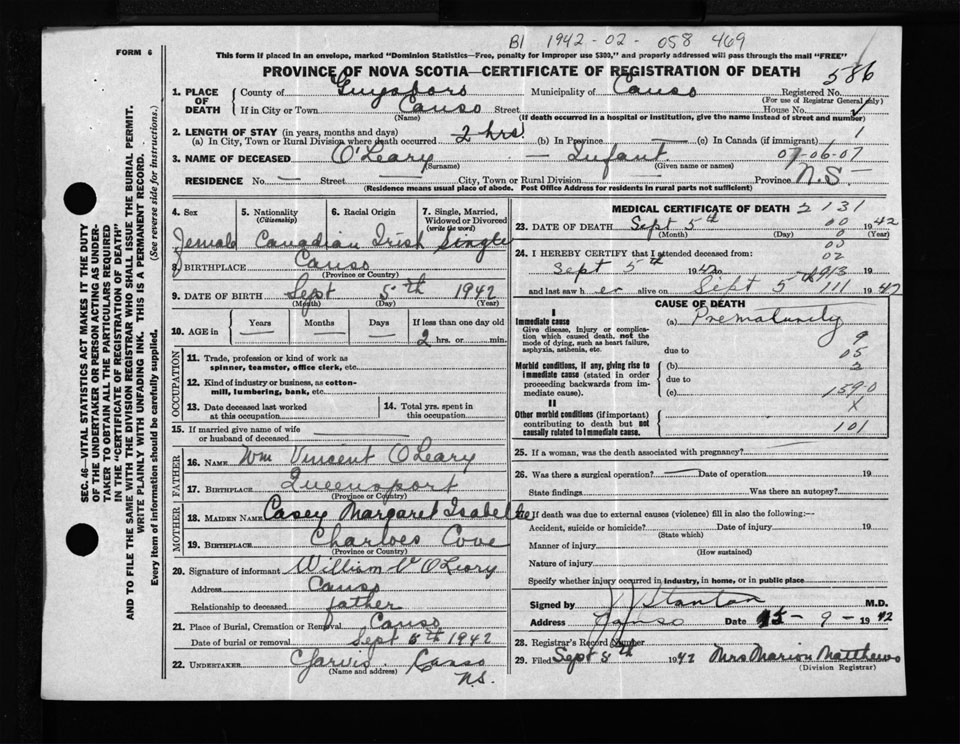 B1 1942-02-058 469
FORM 6
This form if placed in an envelope, marked "Dominion Statistics—Free, penalty for improper use $300," and properly addressed will pass through the mail "FREE"
PROVINCE OF NOVA SCOTIA—CERTIFICATE OF REGISTRATION OF DEATH
586
1. PLACE OF DEATH
County of Guysboro Municipality of Canso Registered No.
(For use of Registrar General only)
If in City or Town Canso Street House No.
(Name) (If death occurred in a hospital or institution, give the name instead of street and number)
2. LENGTH OF STAY (in years, months and days)
(a) In City, Town or Rural Division where death occurred 2 hrs (b) In Province — (c) In Canada (if immigrant) 1
3. NAME OF DECEASED O'Leary — Infant 07-06-07
(Surname) (Given name or names)
RESIDENCE No. — Street — City, Town or Rural Division — Province N.S.
(Residence means usual place of abode. Post Office Address for residents in rural parts not sufficient)
4. Sex
5. Nationality (Citizenship)
6. Racial Origin
7. Single, Married, Widowed or Divorced (write the word)
Female Canadian Irish Single
8. BIRTHPLACE Canso
(Province or Country)
9. DATE OF BIRTH Sept 5th 1942
(Month) (Day) (Year)
10. AGE in Years Months Days If less than one day old
— — — 2 hrs. or min.
OCCUPATION
11. Trade, profession or kind of work as spinner, teamster, office clerk, etc.
12. Kind of industry or business, as cotton-mill, lumbering, bank, etc.
13. Date deceased last worked at this occupation
14. Total yrs. spent in this occupation
15. If married give name of wife or husband of deceased
FATHER
16. NAME Wm Vincent O'Leary
17. BIRTHPLACE Queensport
(Province or Country)
MOTHER
18. MAIDEN NAME Casey Margaret Isabelle
19. BIRTHPLACE Charloes Cove
(Province or Country)
20. Signature of informant William V O'Leary
Address Canso
Relationship to deceased father
21. Place of Burial, Cremation or Removal Canso
Date of burial or removal Sept 5th 1942
22. UNDERTAKER C Jarvis. Canso
(Name and address) N.S.
MEDICAL CERTIFICATE OF DEATH 2131
23. DATE OF DEATH Sept 5th 00 1942
(Month) (Day) 0 (Year)
24. I HEREBY CERTIFY that I attended deceased from: 00
02
Sept 5th 1942 to 1913 19
and last saw h er alive on Sept 5th 111 1942
CAUSE OF DEATH
I
Immediate cause
Give disease, injury or complication which caused death, not the mode of dying, such as heart failure, asphyxia, asthenia, etc.
(a) Prematurity
9
due to 05
Morbid conditions, if any, giving rise to immediate cause (stated in order proceeding backwards from immediate cause).
(b) 2
due to
(c) 1590
II X
Other morbid conditions (if important) contributing to death but not causally related to immediate cause.
101
25. If a woman, was the death associated with pregnancy?
26. Was there a surgical operation? — Date of operation 19
State findings Was there an autopsy?
If death was due to external causes (violence) fill in also the following:—
Accident, suicide or homicide? Date of injury 19
(State which)
Manner of injury
(How sustained)
Nature of injury
Specify whether injury occurred in industry, in home, or in public place
Signed by J J Stanton M.D.
Address Canso Date 5-9-1942
28. Registrar's Record Number
29. Filed Sept 5th 1942 Mrs Marion Matthews
(Division Registrar)
SEC. 46—VITAL STATISTICS ACT MAKES IT THE DUTY
OF THE UNDERTAKER OR PERSON ACTING AS UNDER-
TAKER TO OBTAIN ALL THE PARTICULARS REQUIRED
IN THE "CERTIFICATE OF REGISTRATION OF DEATH"
AND TO FILE THE SAME WITH THE DIVISION REGISTRAR WHO SHALL ISSUE THE BURIAL PERMIT.
WRITE PLAINLY WITH UNFADING INK. THIS IS A PERMANENT RECORD.
Every item of information should be carefully supplied. (See reverse side for instructions.)